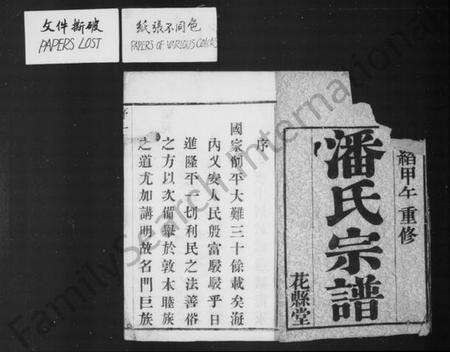 文件撕破
PAPERS LOST
紙張不同色
PAPERS OF VARIOUS COLORS
甲午重修
潘氏宗譜
花縣堂
序
國家削平大難三十餘載矣海
內乂安人民殷富駸駸乎日
進隆平一切利民之法善俗
之方以次備舉於敦本睦族
之道尤加講明故名門巨族
FamilySearch International